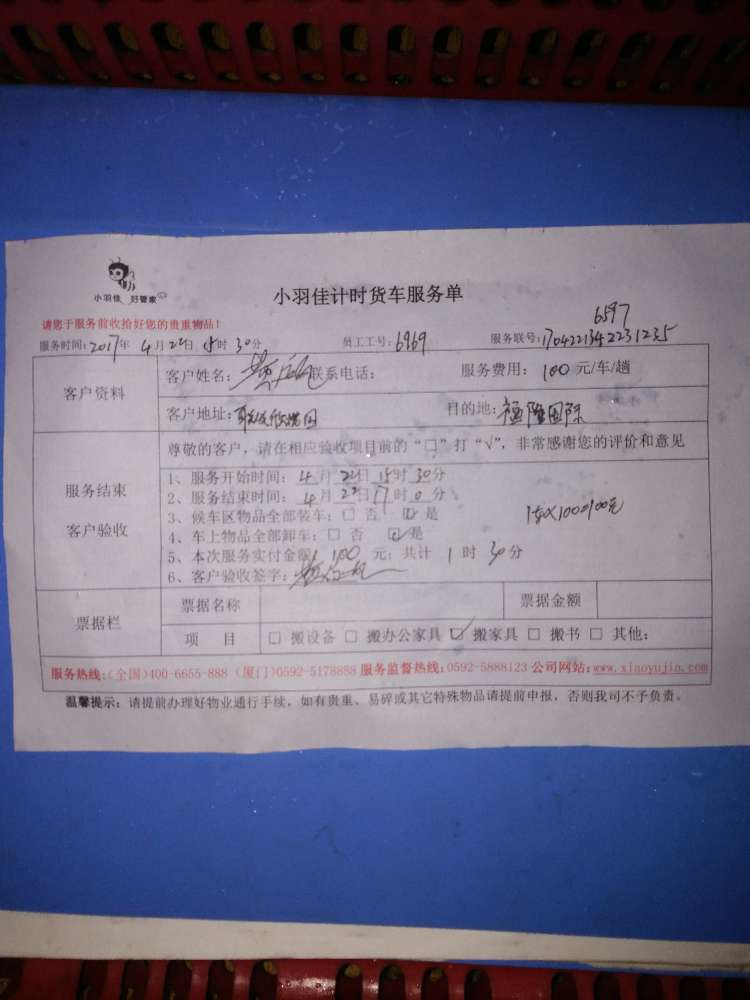 小羽佳 好管家
小羽佳计时货车服务单
请您于服务前收拾好您的贵重物品!
6597
服务时间:2017年 4月22日 15时30分 员工工号:6969 服务联号:170422134223 1235
客户资料
客户姓名: 联系电话: 服务费用: 100 元/车/趟
客户地址: 目的地:福隆国际
服务结束
客户验收
尊敬的客户,请在相应验收项目前的“□”打“√”,非常感谢您的评价和意见
1、服务开始时间: 4月22日15时30分
2、服务结束时间: 4月22日17时0分
3、候车区物品全部装车:□ 否 ☑ 是
4、车上物品全部卸车:□ 否 ☑ 是
5、本次服务实付金额 100 元;共计 1 时 30 分
6、客户验收签字:
票据栏
票据名称 票据金额
项 目 □ 搬设备 □ 搬办公家具 ☑ 搬家具 □ 搬书 □ 其他:
服务热线:(全国)400-6655-888 (厦门)0592-5178888 服务监督热线:0592-5888123 公司网站:www.xiaoyujia.com
温馨提示:请提前办理好物业通行手续,如有贵重、易碎或其它特殊物品请提前申报,否则我司不予负责。